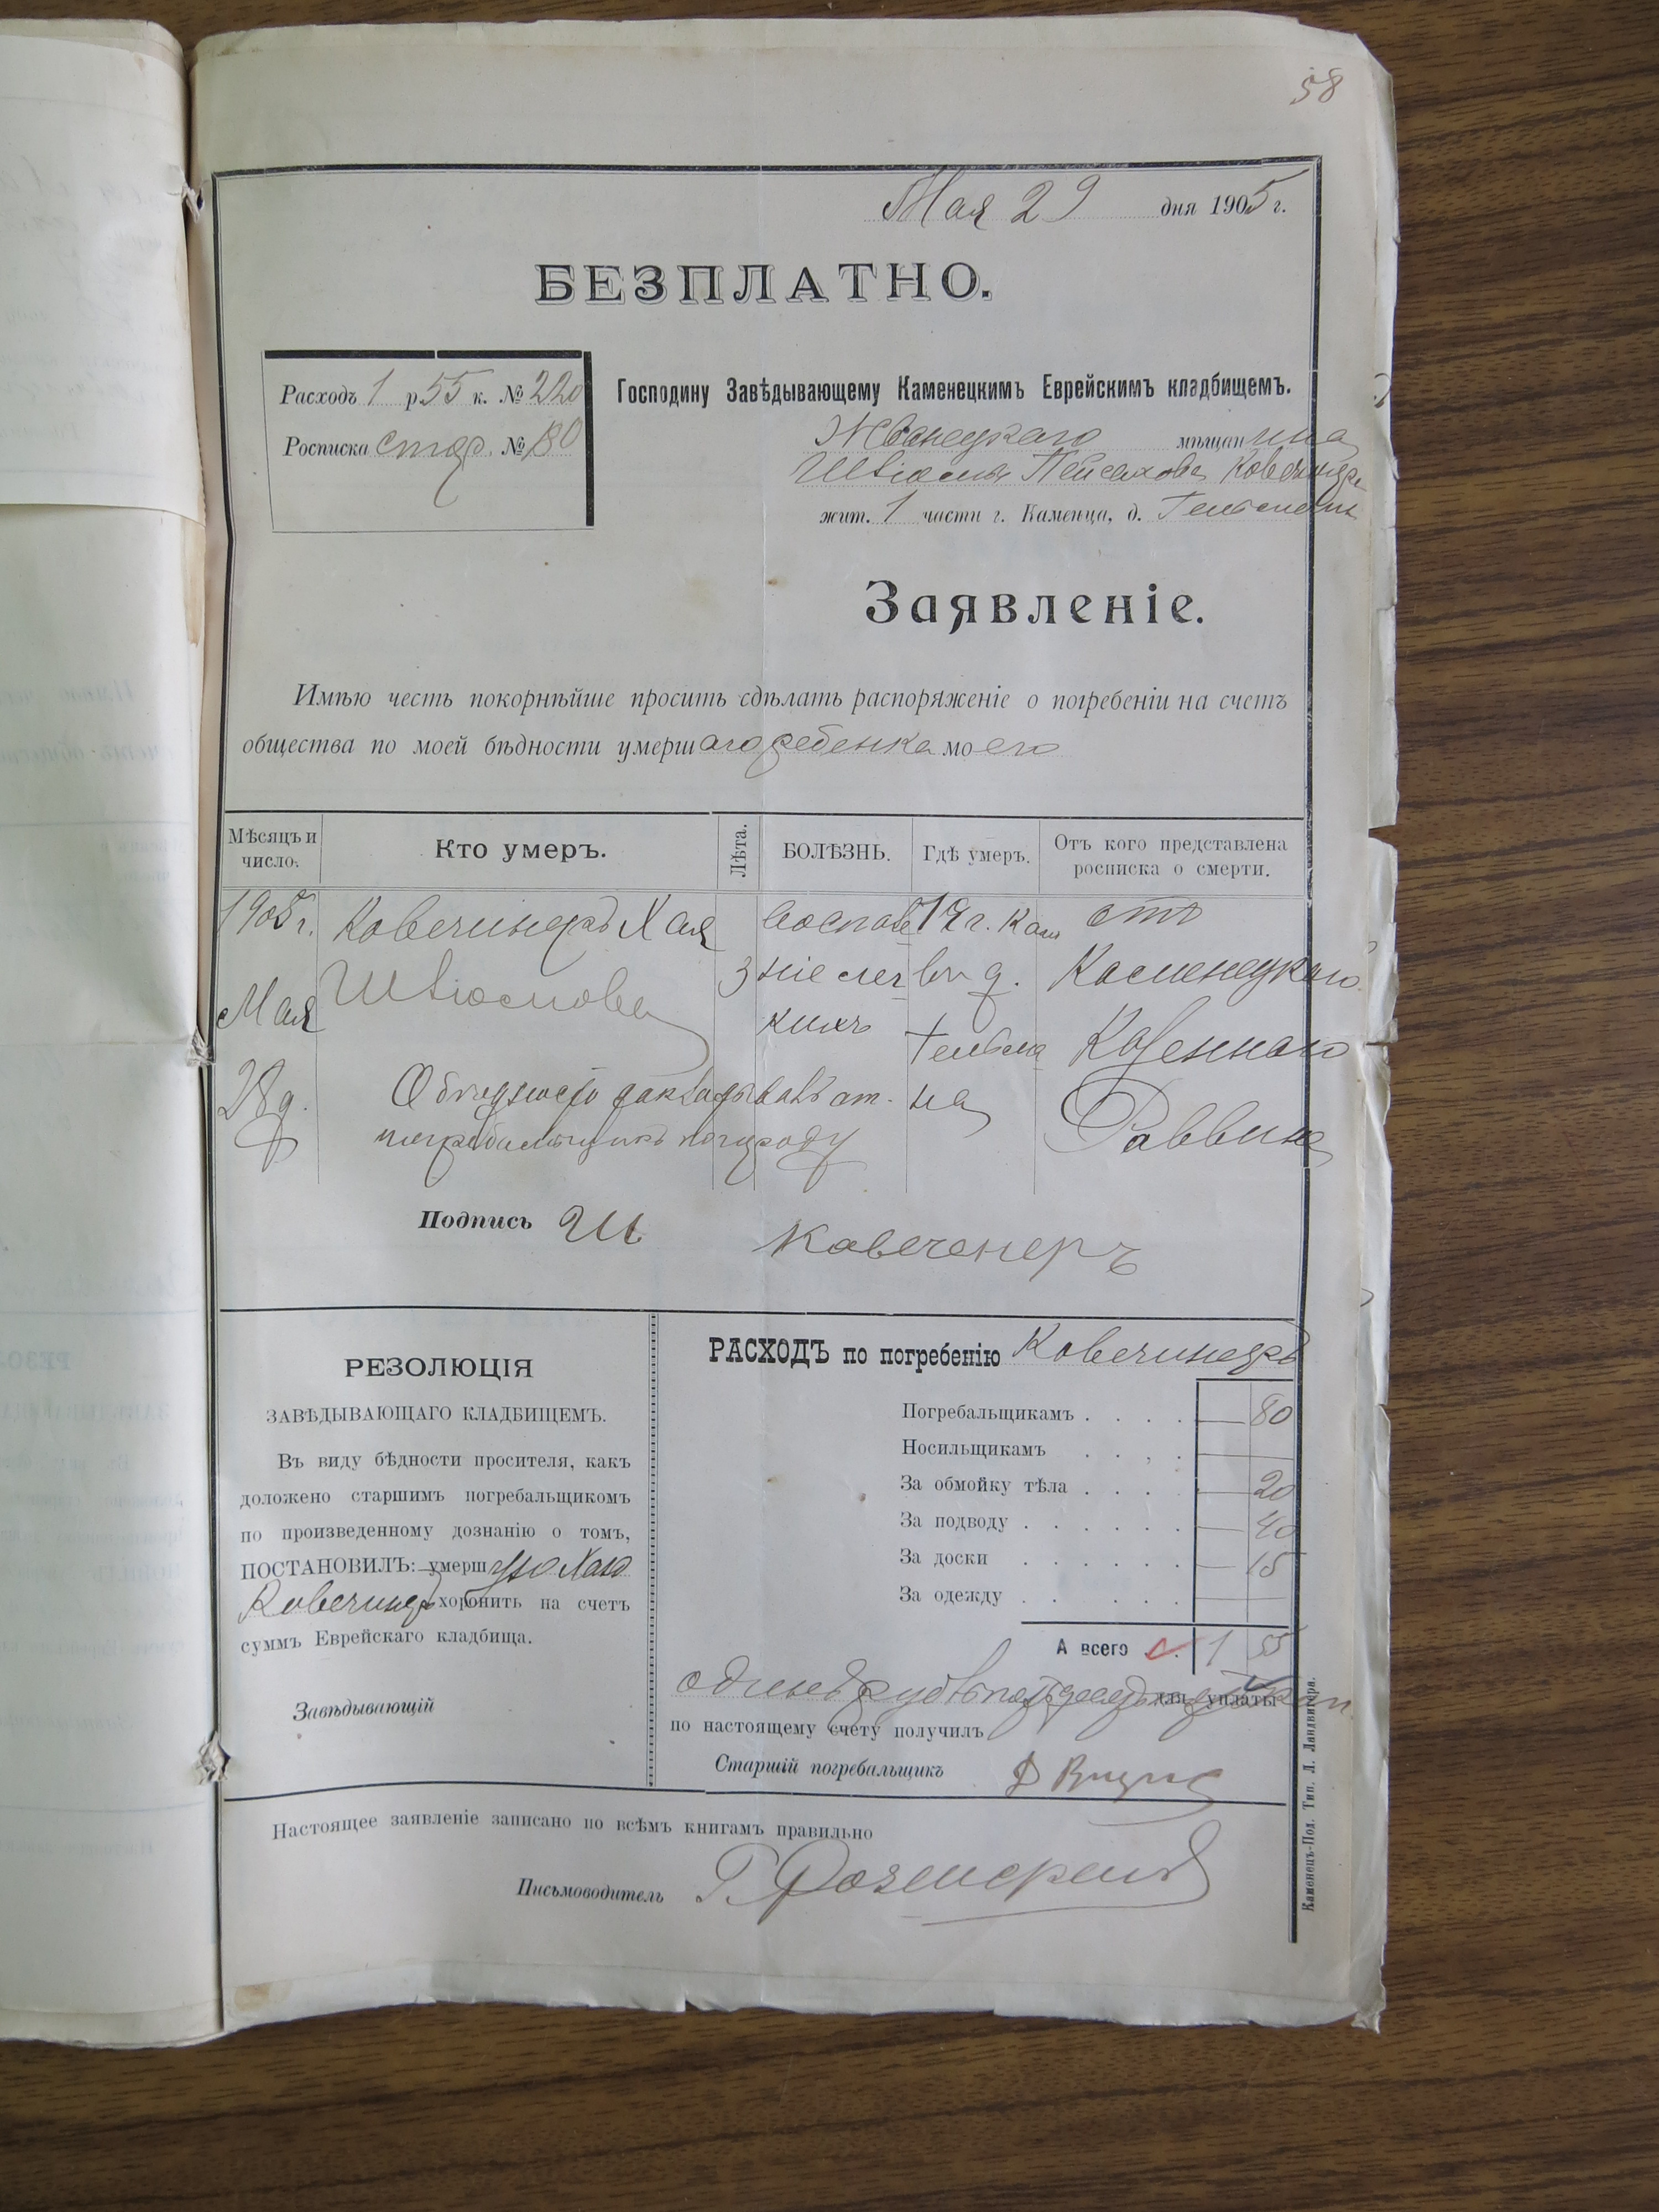 58
Мая 29 дня 1905 г.
БЕЗПЛАТНО.
Расходъ 1 р. 55 к. № 220
Росписка стор. № 80
Господину Завѣдывающему Каменецкимъ Еврейскимъ кладбищемъ.
Жванецкаго мѣщанина
Пейсахова
жит. 1 части г. Каменца, д. Гельмана
Заявленіе.
Имѣю честь покорнѣйше просить сдѣлать распоряженіе о погребеніи на счетъ
общества по моей бѣдности умершаго ребенка моего
Мѣсяцъ и число. Кто умеръ. Лѣта. БОЛѢЗНЬ. Гдѣ умеръ. Отъ кого представлена росписка о смерти.
1905 г. Ковечинеръ Хая воспале 1 ч. г. Кам отъ
Шлiомова 3 ніе лег въ д. Каменецкаго
Мая кихъ Гельма Казеннаго
28 д. на Раввина
погребальщикъ по городу
Подпись Ш Кавеченеръ
РЕЗОЛЮЦІЯ
ЗАВѢДЫВАЮЩАГО КЛАДБИЩЕМЪ.
Въ виду бѣдности просителя, какъ
доложено старшимъ погребальщикомъ
по произведенному дознанію о томъ,
ПОСТАНОВИЛЪ: умершую Хаю
Ковечинеръ хоронить на счетъ
суммъ Еврейскаго кладбища.
Завѣдывающій
РАСХОДЪ по погребенію Ковечинеръ
Погребальщикамъ . . . . — 80
Носильщикамъ . . . . —
За обмойку тѣла . . . . — 20
За подводу . . . . . . — 40
За доски . . . . . . — 15
За одежду . . . . . . —
А всего 1 55
одинъ рубль пятьдесятъ пять коп для уплаты
по настоящему счету получилъ
Старшій погребальщикъ
Настоящее заявленіе записано по всѣмъ книгамъ правильно
Письмоводитель Г.
Каменецъ-Под. Тип. Л. Ландвигера.